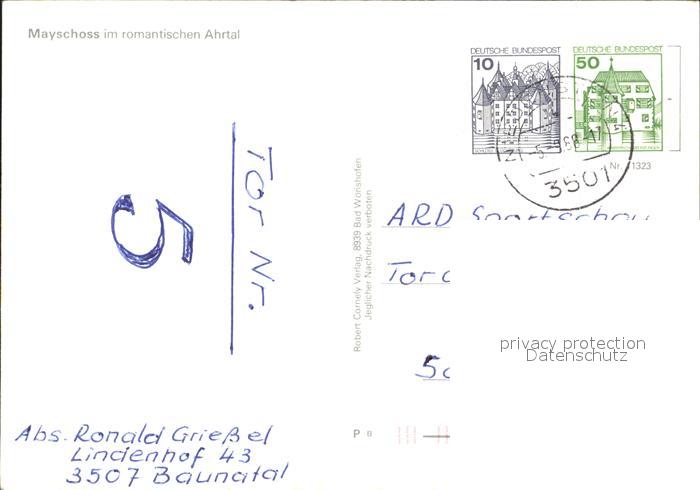 Mayschoss im romantischen Ahrtal
DEUTSCHE BUNDESPOST
10
DEUTSCHE BUNDESPOST
50
3501
Nr. 1323
Tor Nr.
5
Robert Cornely Verlag, 8939 Bad Wörishofen
Jeglicher Nachdruck verboten
ARD Sportschau
Tor
privacy protection
Datenschutz
P 8
Abs. Ronald Grießel
Lindenhof 43
3507 Baunatal